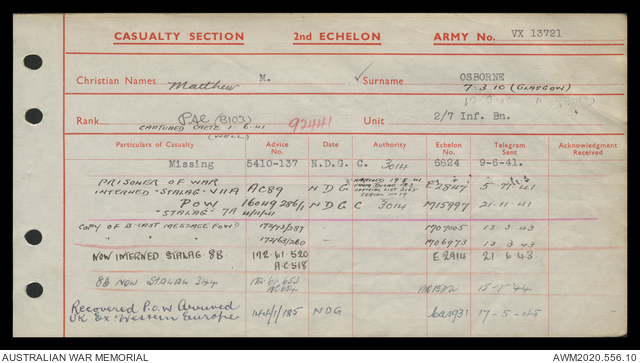 CASUALTY SECTION 2nd ECHELON ARMY No. VX 13721
Christian Names Matthew M. Surname OSBORNE
7-3-10 (GLASGOW)
Rank Pte (B103) 92441 Unit 2/7 Inf. Bn.
CAPTURED CRETE 1-6-41
(WELL)
Particulars of Casualty Advice No. Date Authority Echelon No. Telegram Sent Acknowledgment Received
Missing 5410-137 N.D.G. C. 3014 6824 9-6-41.
PRISONER OF WAR
INTERNED "STALAG" VIIA AC89 NDG E2847 5-11-41
POW 16049286/1 NDG C 3014 M15997 21-11-41
"STALAG" 7A 4/11/41
COPY OF B'CAST MESSAGE POW 172/73/287 M07005 13-3-43
" " " 172/63/260 M06973 13-3-43
NOW INTERNED STALAG 8B 172-61-520 E2914 21-6-43
A.C.518
8B NOW STALAG 344
Recovered P.O.W Arrived 144/1/185 NDG 17-5-45
UK ex Western Europe
AUSTRALIAN WAR MEMORIAL AWM2020.556.10